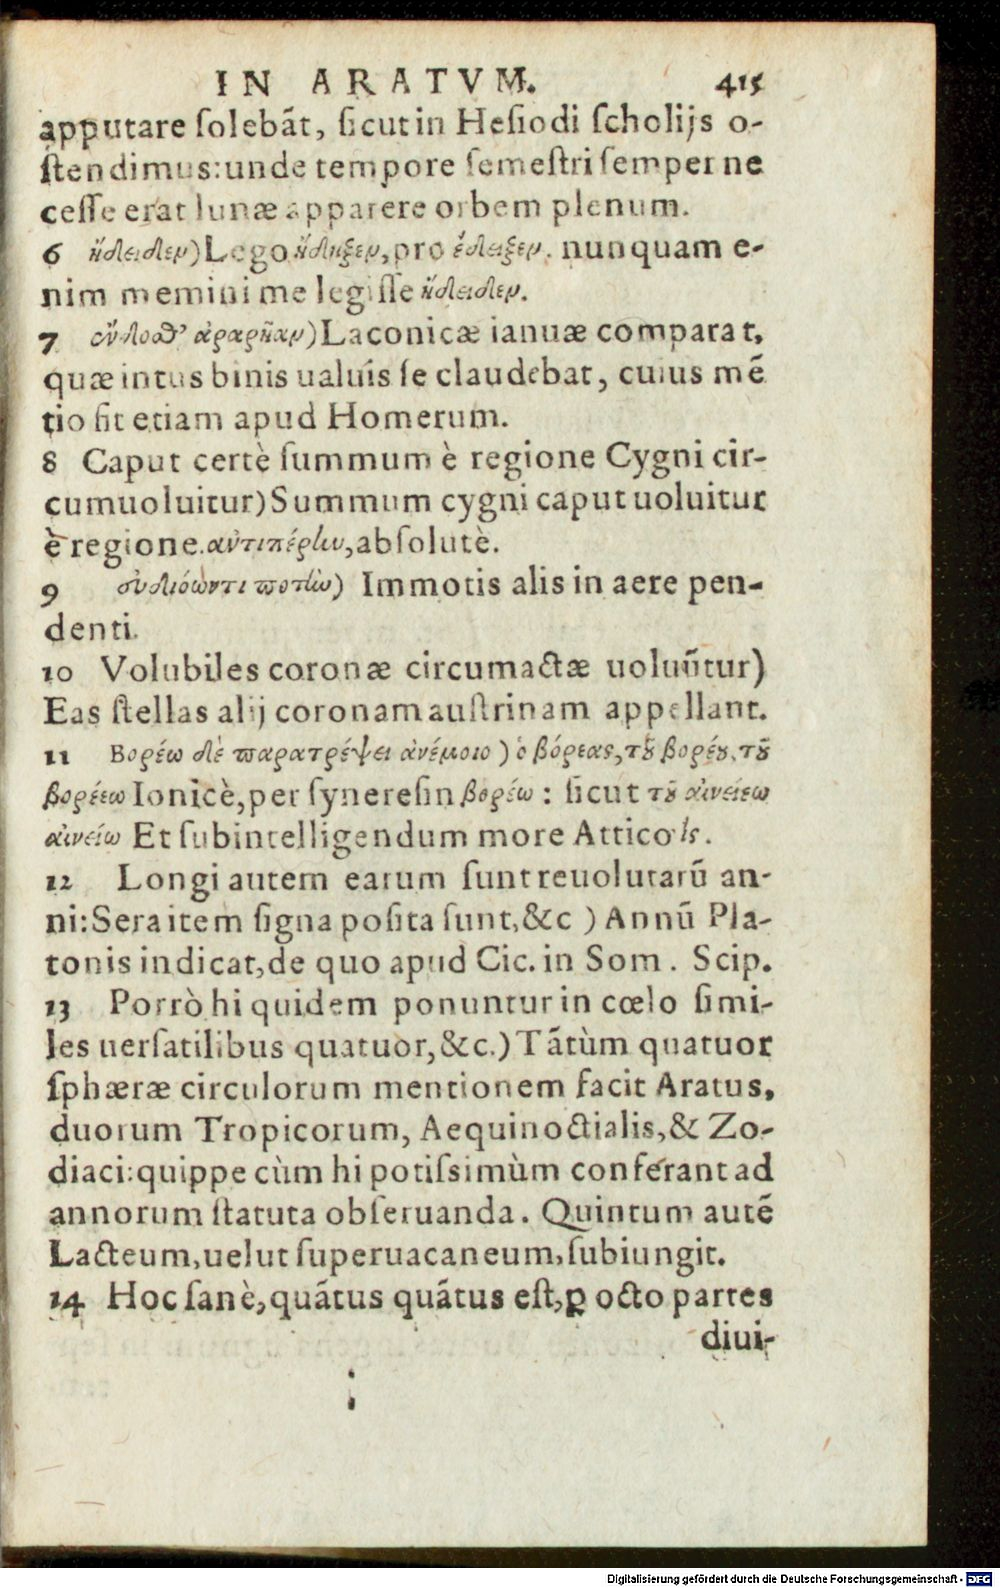 IN ARATVM. 415
apputare ſolebãt, ſicut in Heſiodi ſcholijs o-
ſtendimus: unde tempore ſemeſtri ſemper ne
ceſſe erat lunæ apparere orbem plenum.
6 ἤδειδεν) Lego ἤδηξεν, pro ἔδειξεν. nunquam e-
nim memini me legiſſe ἤδειδεν.
7 ἔνδοθ’ ἀραρῆαν) Laconicæ ianuæ comparat,
quæ intus binis ualuis ſe claudebat, cuius mẽ
tio fit etiam apud Homerum.
8 Caput certè ſummum è regione Cygni cir-
cumuoluitur) Summum cygni caput uoluitur
è regione. ἀντιπέρην, abſolutè.
9 εὐδιόωντι ποτὴν) Immotis alis in aere pen-
denti.
10 Volubiles coronæ circumactæ uoluũtur)
Eas ſtellas alij coronam auſtrinam appellant.
11 Βορέω δὲ παρατρέψει ἀνέμοιο) ὁ βόρεας, τοῦ βορέου, τοῦ
βορέεω Ionicè, per ſynereſin βορέω: ſicut τοῦ αἰνείεω
αἰνείω Et ſubintelligendum more Attico ἲς.
12 Longi autem earum ſunt reuolutarũ an-
ni: Sera item ſigna poſita ſunt, &c) Annũ Pla-
tonis indicat, de quo apud Cic. in Som. Scip.
13 Porrò hi quidem ponuntur in cœlo ſimi-
les uerſatilibus quatuor, &c.) Tãtùm quatuor
ſphæræ circulorum mentionem facit Aratus,
duorum Tropicorum, Aequinoctialis, & Zo-
diaci: quippe cùm hi potiſsimùm conferant ad
annorum ſtatuta obſeruanda. Quintum autẽ
Lacteum, uelut ſuperuacaneum, ſubiungit.
14 Hoc ſanè, quãtus quãtus eſt, ꝑ octo partes
diui-
Digitalisierung gefördert durch die Deutsche Forschungsgemeinschaft - DFG